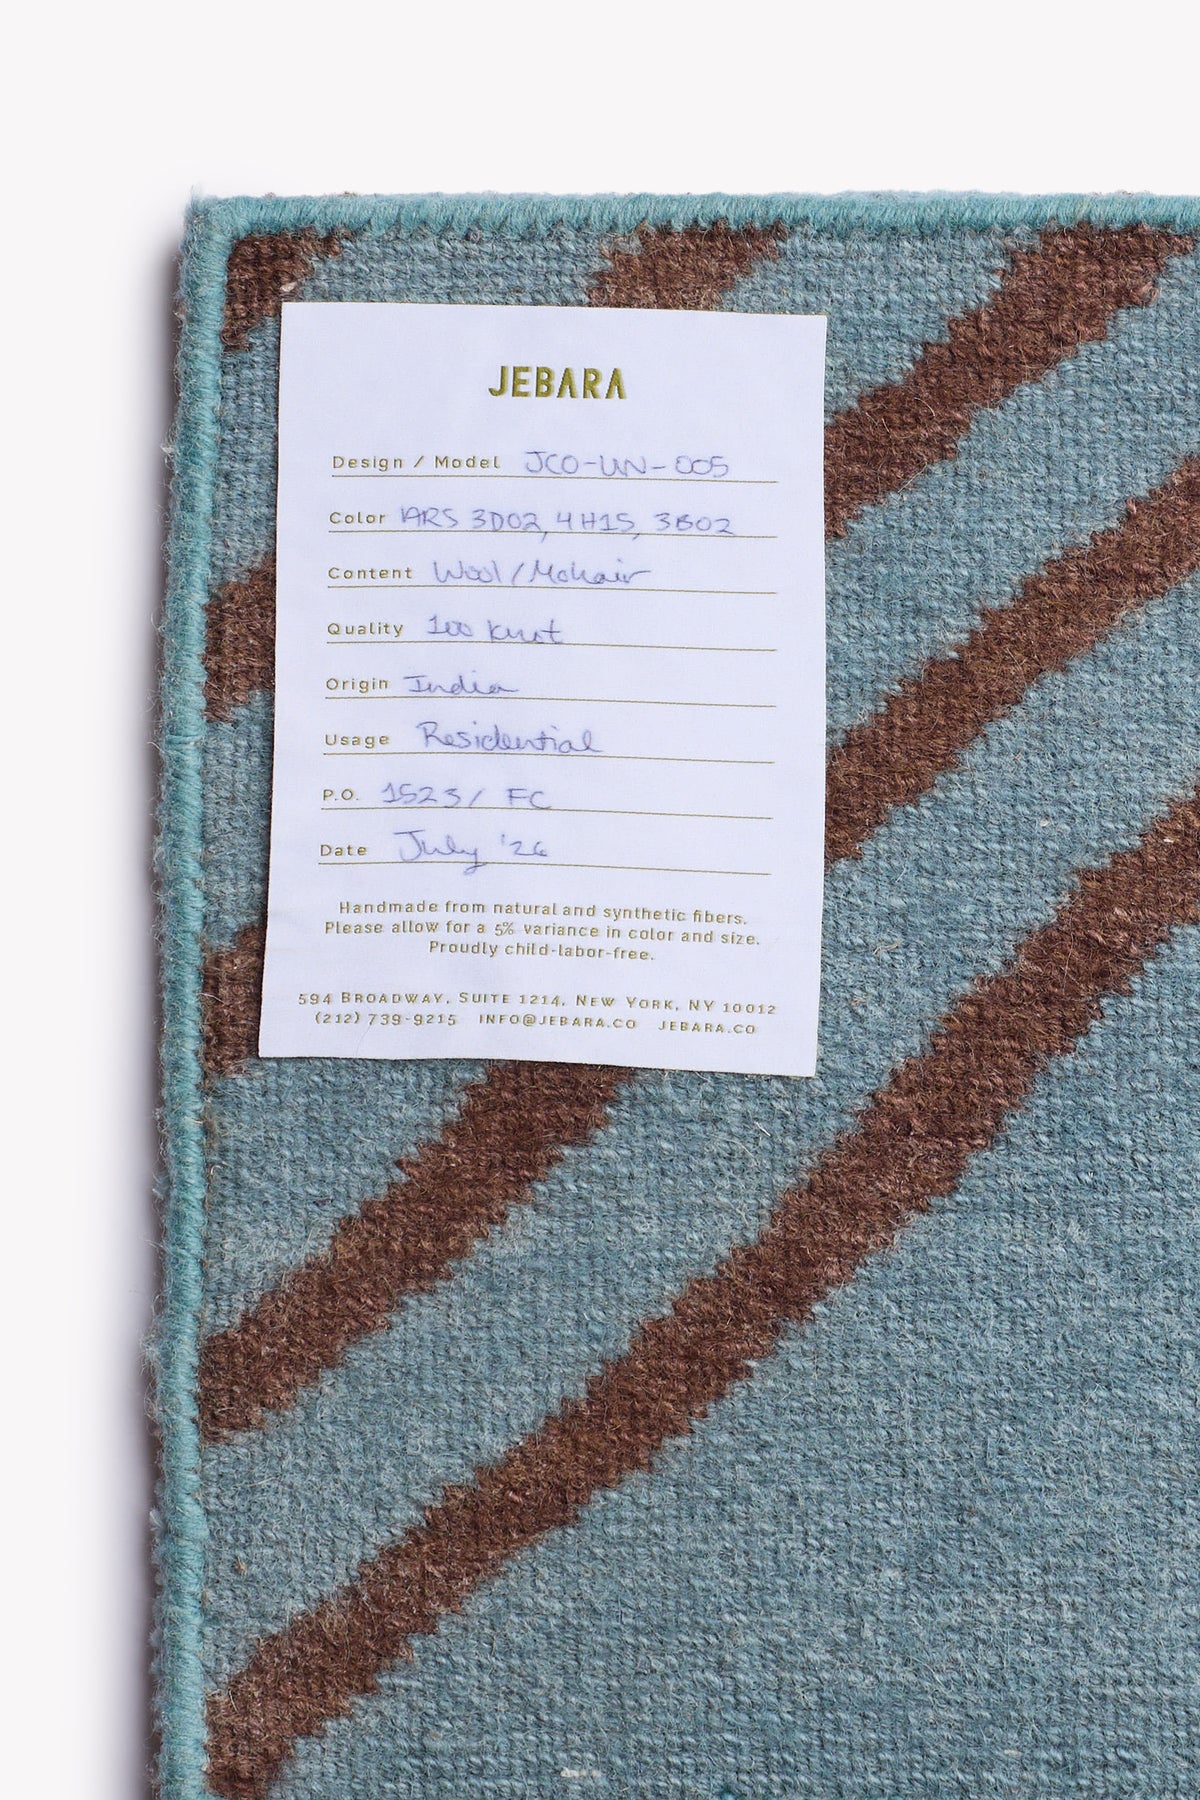 JEBARA
Design / Model JCO-UN-005
Color ARS 3D02, 4H15, 3B02
Content Wool/Mohair
Quality 100 knot
Origin India
Usage Residential
P.O. 1523/ FC
Date July '26
Handmade from natural and synthetic fibers.
Please allow for a 5% variance in color and size.
Proudly child-labor-free.
594 BROADWAY, SUITE 1214, NEW YORK, NY 10012
(212) 739-9215 INFO@JEBARA.CO JEBARA.CO